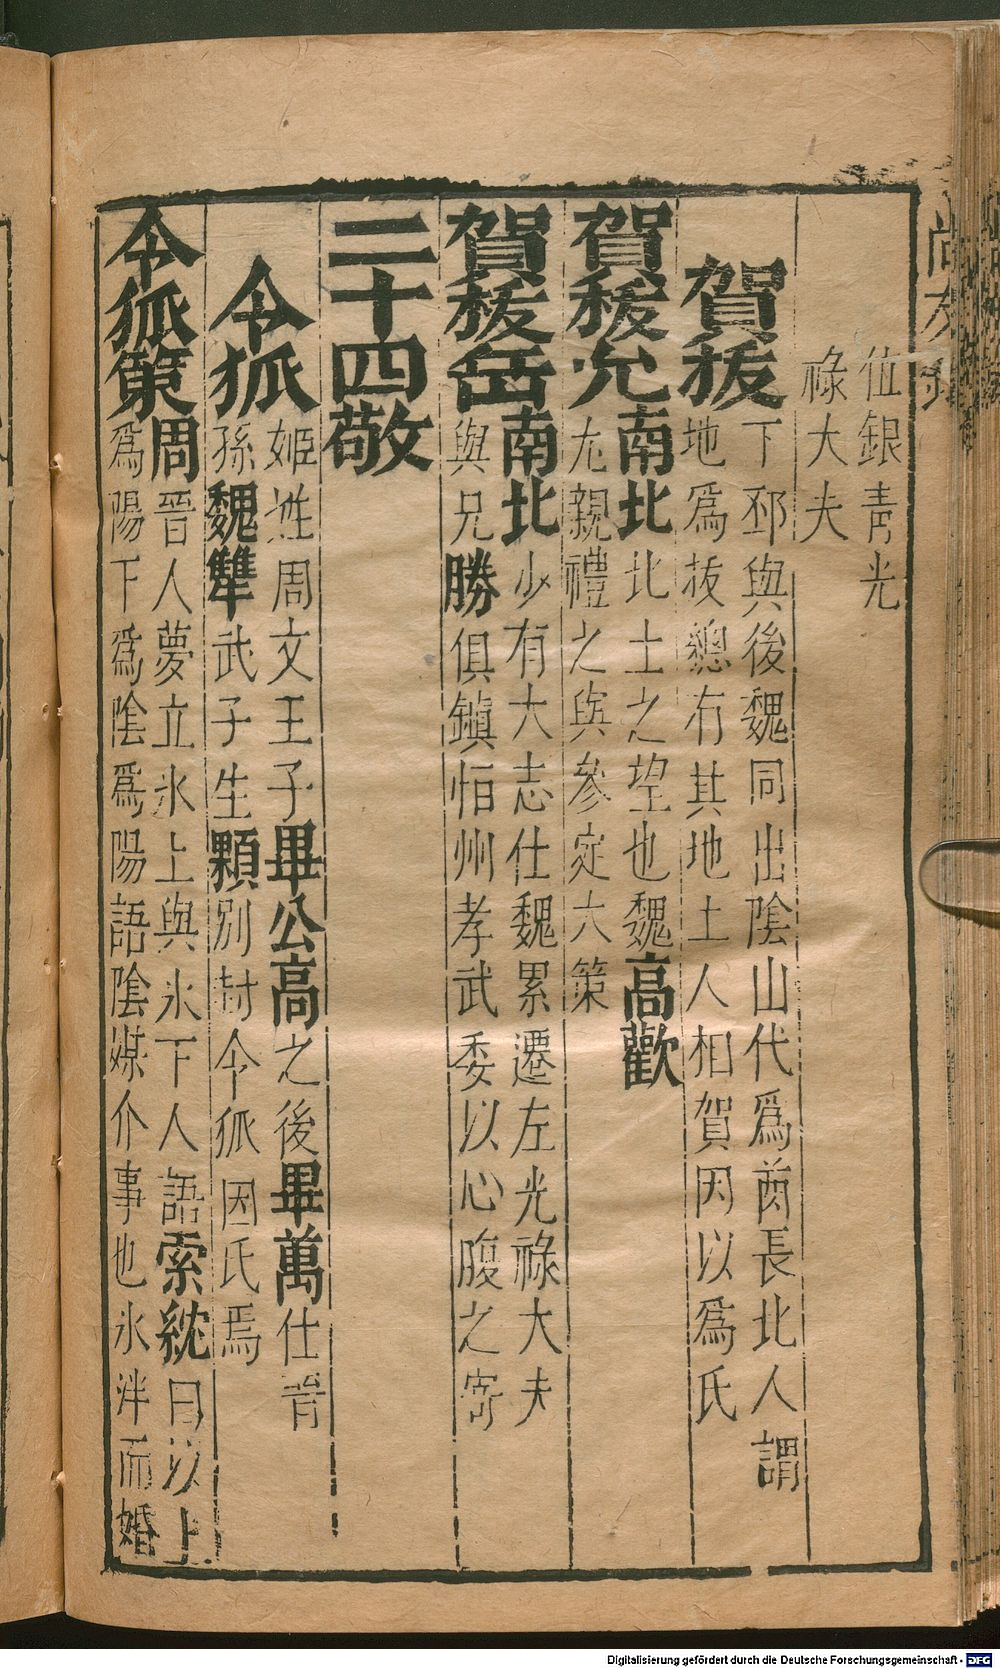 仕銀青光
祿大夫
賀拔
下邳與後魏同出陰山代爲酋長北人謂
地爲拔總有其地土人相賀因以爲氏
賀拔允
南北北土之望也魏高歡
尤親禮之與參定大策
賀拔岳
南北少有大志仕魏累遷左光祿大夫
與兄勝俱鎮恒州孝武委以心腹之寄
二十四敬
令狐
姬姓周文王子畢公高之後畢萬仕晋
孫魏犨武子生顆別封令狐因氏焉
令狐策
周晉人夢立氷上與氷下人語索紞曰以上
爲陽下爲陰爲陽語陰媒介事也氷泮而婚
尚友錄
Digitalisierung gefördert durch die Deutsche Forschungsgemeinschaft - DFG